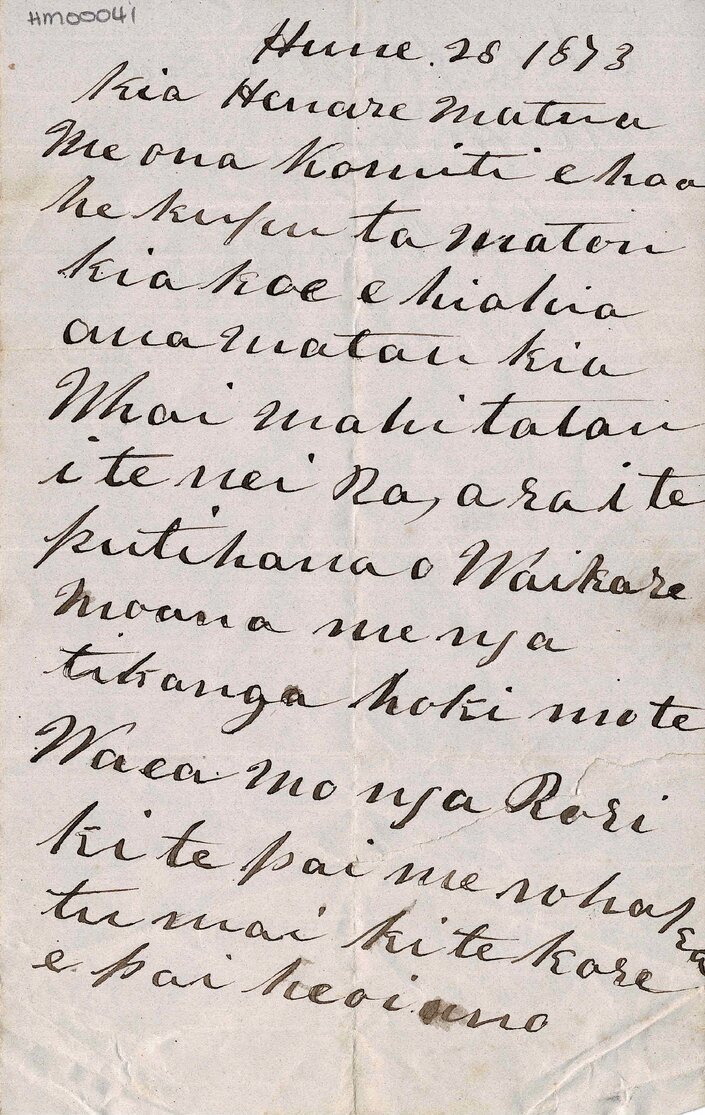 HM00041
Hune. 28 1873
kia Henare Matua
Me ona Komiti e hoa
he kupu ta matou
kia koe e hiahia
ana matou kia
Whai mahi tatou
i te nei Ra, ara i te
putihana o Waikare
moana me nga
tikanga hoki mo te
Waea mo nga Rori
ki te pai me whaka
tu mai ki te kore
e pai heoi ano